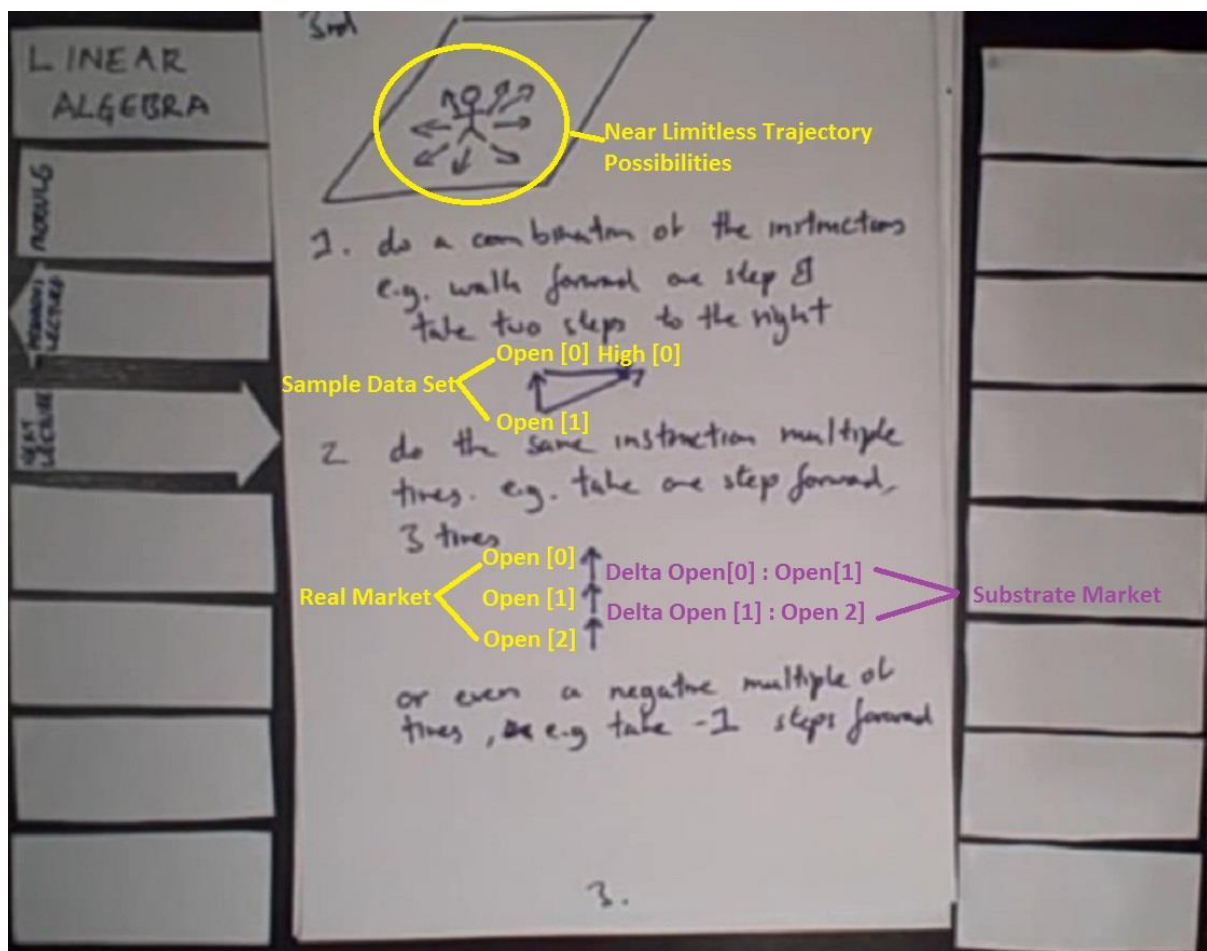 LINEAR
ALGEBRA
MODULE
PREVIOUS
LECTURE
NEXT
LECTURE
3rd
Near Limitless Trajectory
Possibilities
1. do a combination of the instructions
e.g. walk forward one step &
take two steps to the right
Open [0] High [0]
Sample Data Set
Open [1]
2 do the same instruction multiple
times. e.g. take one step forward,
3 times
Open [0]
Delta Open[0] : Open[1]
Real Market
Open [1]
Substrate Market
Delta Open [1] : Open 2]
Open [2]
or even a negative multiple of
times, e.g take -1 steps forward
3.